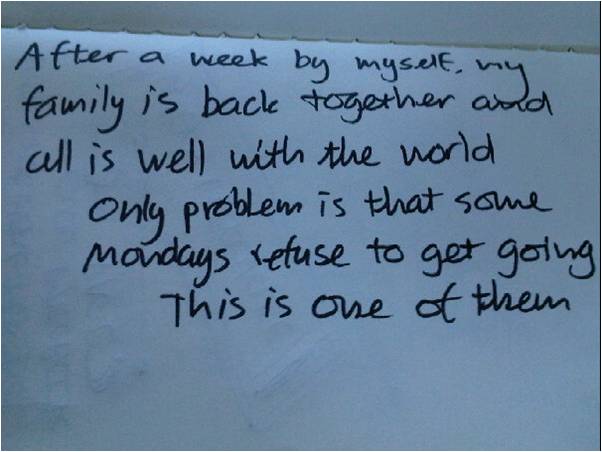 After a week by myself, my
family is back together and
all is well with the world
Only problem is that some
Mondays refuse to get going
This is one of them